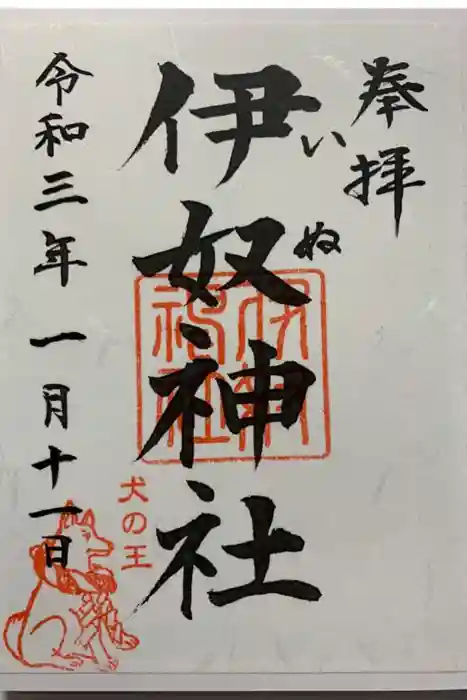 奉拝
いぬ
伊奴神社
伊奴神社
犬の王
令和三年一月十一日